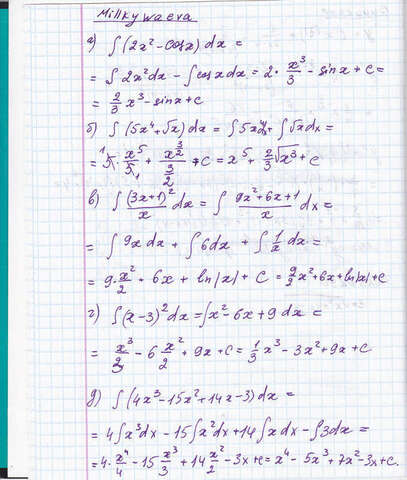 Millkywaeva
а) ∫(2x²-cosx)dx =
= ∫2x²dx - ∫cosxdx = 2·x³/3 - sinx + c =
= 2/3 x³ - sinx + c
б) ∫(5x⁴+√x)dx = ∫5x⁴dx + ∫√xdx =
= 5·x⁵/5 + x^(3/2)/(3/2) + c = x⁵ + 2/3 √x³ + c
в) ∫(3x+1)²/x dx = ∫(9x²+6x+1)/x dx =
= ∫9xdx + ∫6dx + ∫1/x dx =
= 9·x²/2 + 6x + ln|x| + C = 9/2 x² + 6x + ln|x| + c
г) ∫(x-3)²dx = ∫x²-6x+9dx =
= x³/3 - 6x²/2 + 9x + c = 1/3 x³ - 3x² + 9x + c
д) ∫(4x³-15x²+14x-3)dx =
= 4∫x³dx - 15∫x²dx + 14∫xdx - ∫3dx =
= 4·x⁴/4 - 15x³/3 + 14x²/2 - 3x + c = x⁴ - 5x³ + 7x² - 3x + c.